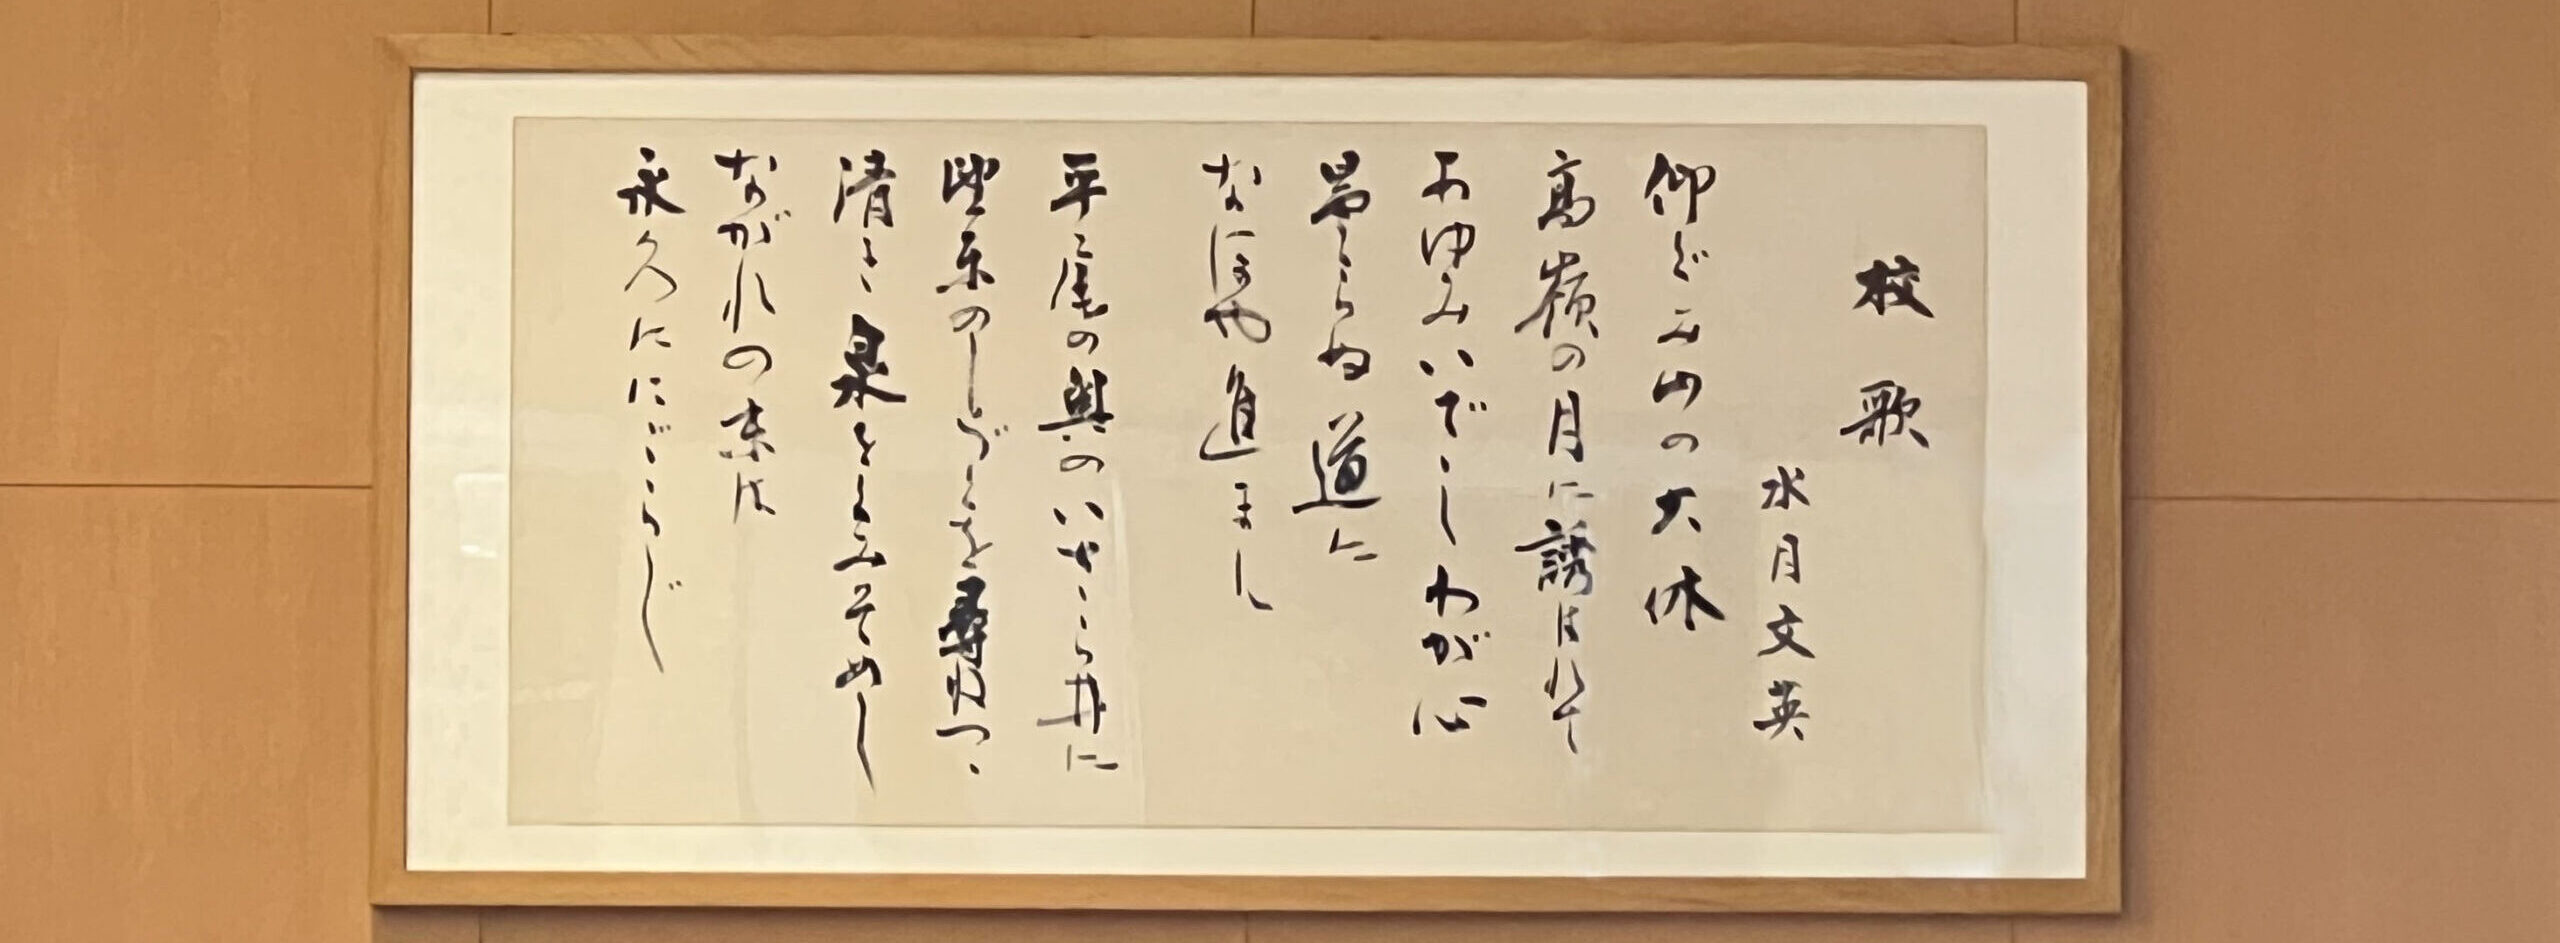 校歌
水月文英
仰ぐみ山の大休
高嶺の月に誘はれて
あゆみいでしわが心
曇らぬ道に
なほや進まし
平尾の奥のいさゝら井に
望東のしづくを尋ねつゝ
清き泉をくみそめし
ながれの末は
永久ににごらじ